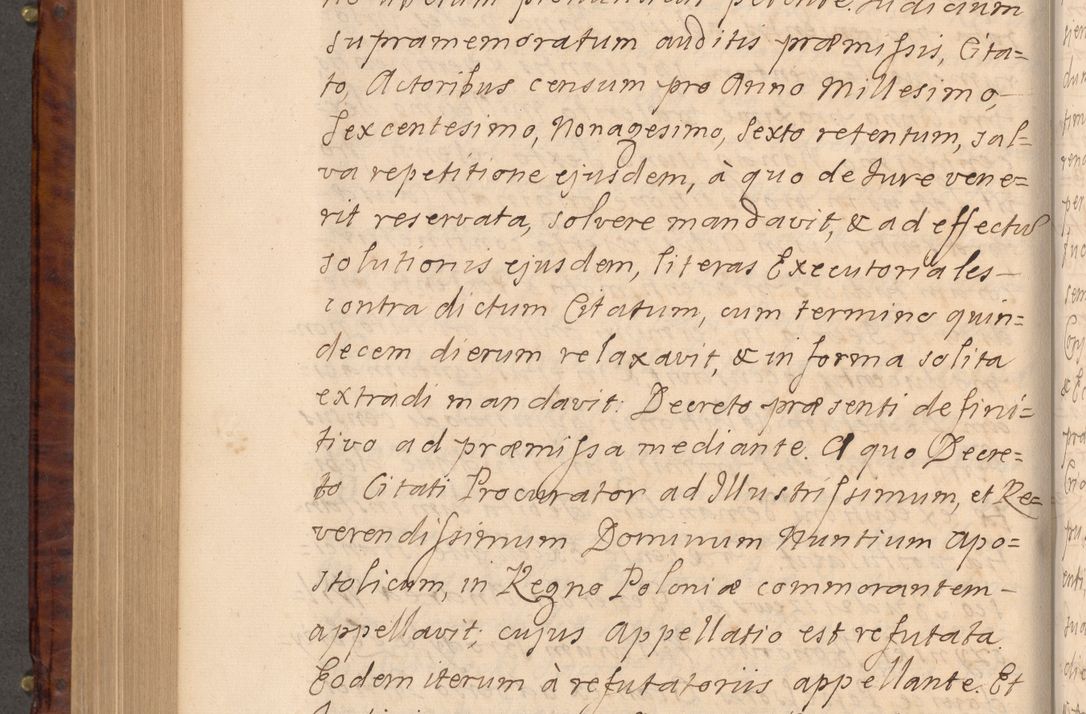 supramemoratum auditis præmissis, Cita=
to, Actoribus censum pro Anno Millesimo,
Sexcentesimo, Nonagesimo, Sexto retentum, sal=
va repetitione ejusdem, à quo de Jure vene=
rit reservata, solvere mandavit, & ad effectu
solutionis ejusdem, literas Executoriales
contra dictum Citatum, cum termino quin=
decem dierum relaxavit, & in forma solita
extradi mandavit: Decreto præsenti defini=
tivo ad præmissa mediante. A quo Decre=
to Citati Procurator ad Illustrissimum, et Re=
verendissimum Dominum Nuntium Apo=
stolicum, in Regno Poloniæ commorantem
appellavit; cujus Appellatio est refutata
Eodem iterum à refutatoriis appellante. Et